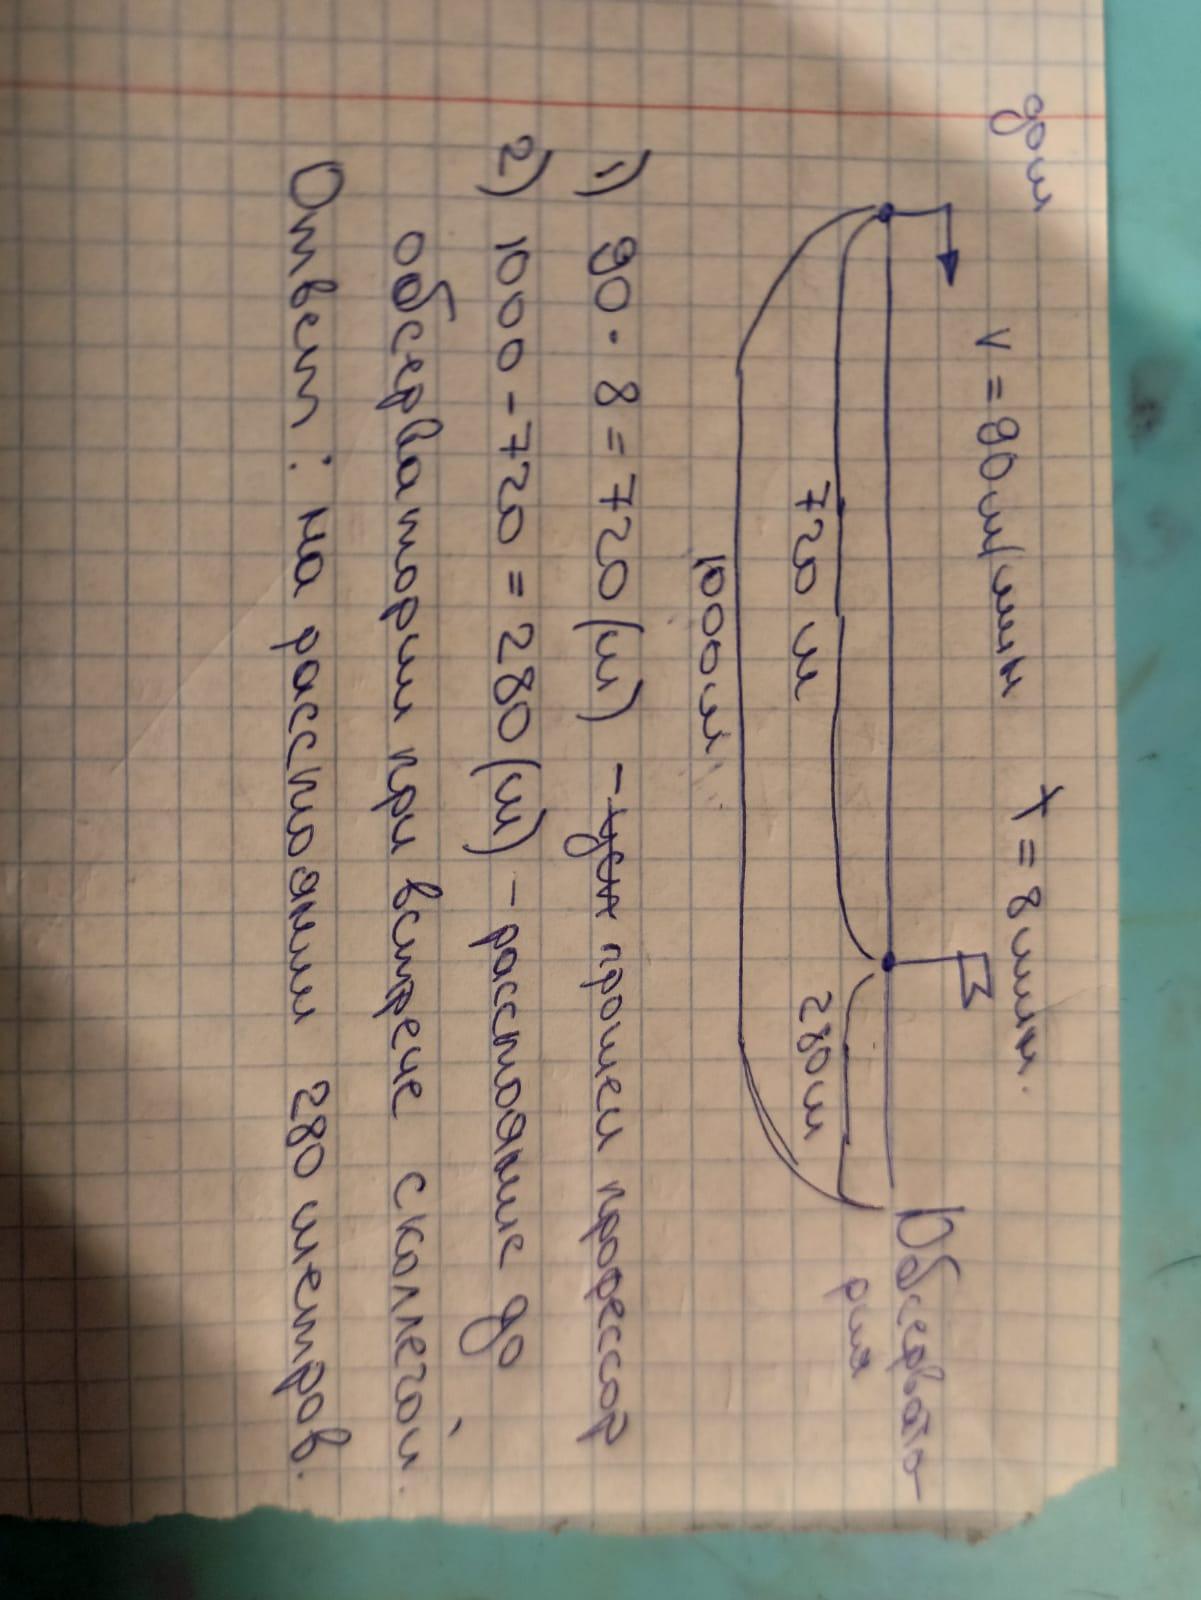 дом
v = 90 м/мин t = 8 мин.
720 м
280 м
Обсервато-
рия
1000 м
1) 90 · 8 = 720 (м) - прошел профессор
2) 1000 - 720 = 280 (м) - расстояние до
обсерватории при встрече с коллегой.
Ответ: на расстоянии 280 метров.